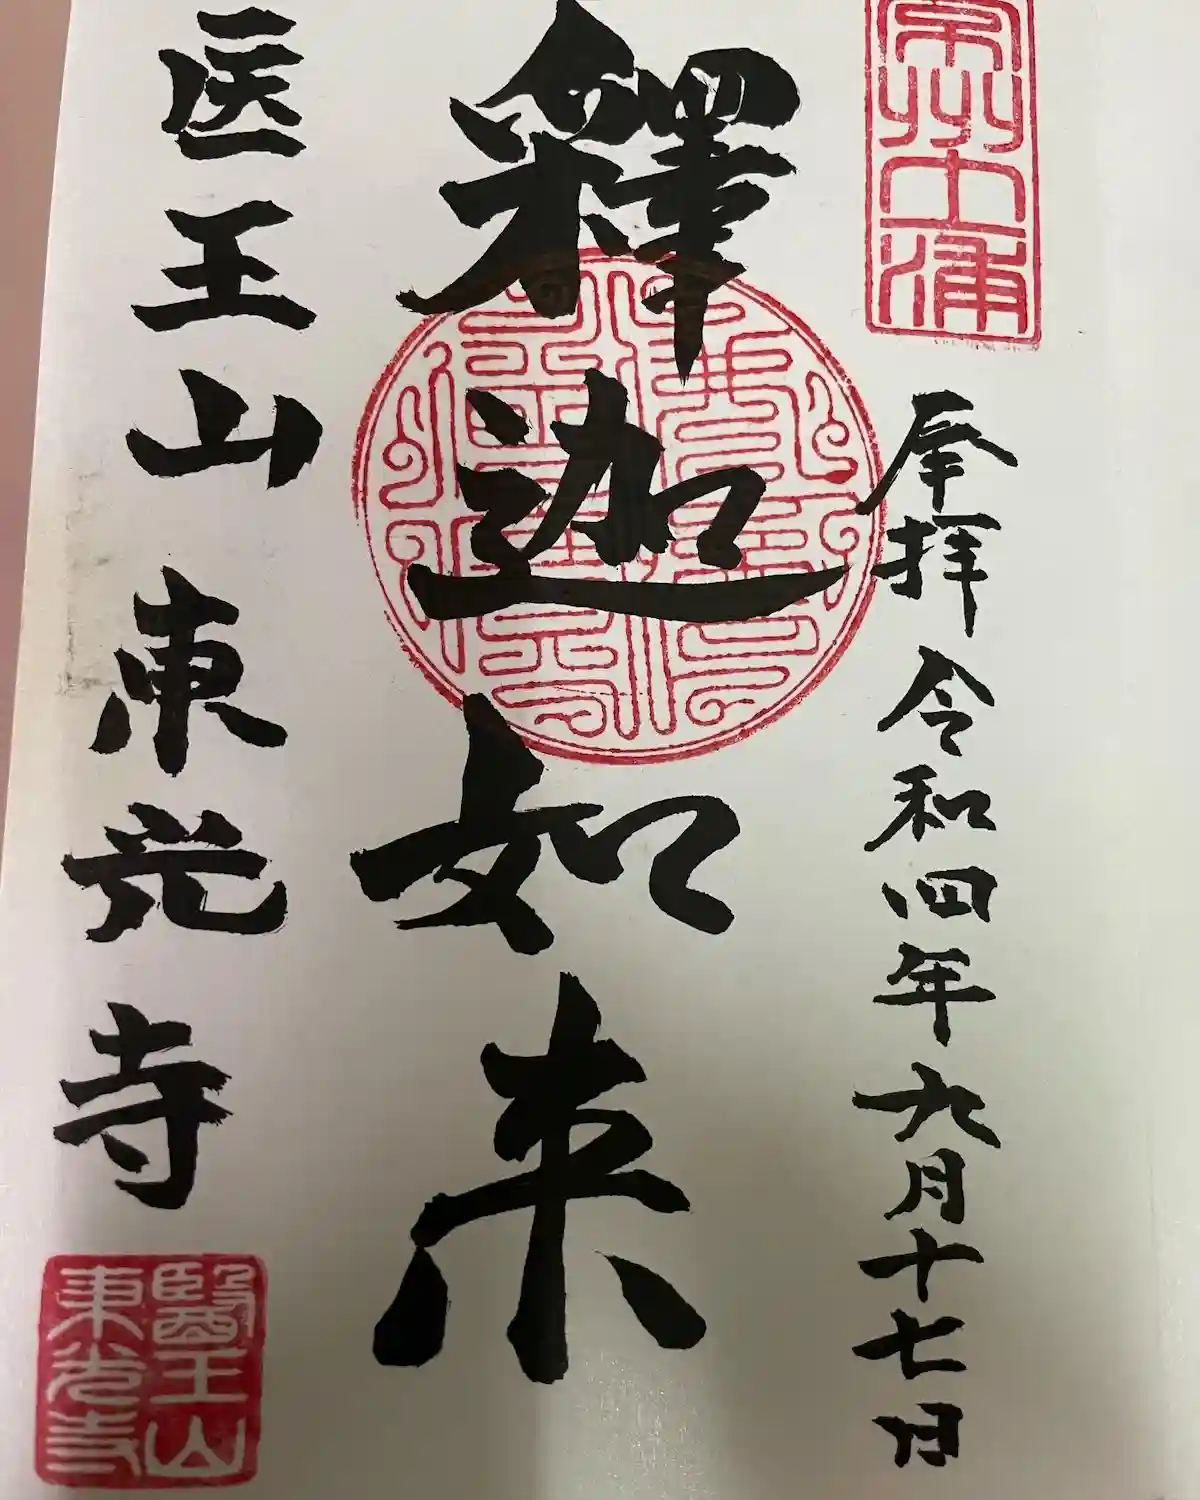 常州土浦
奉拝 令和四年九月十七日
釋迦如来
医王山 東光寺
醫王山
東光寺